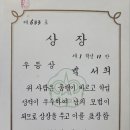 제 633 호
상 장
제 1 학년 11 반
우등상 박 서희
위 사람은 품행이 바르고 학업
성적이 우수하여 남의 모범이
되므로 상장을 주고 이를 표창함